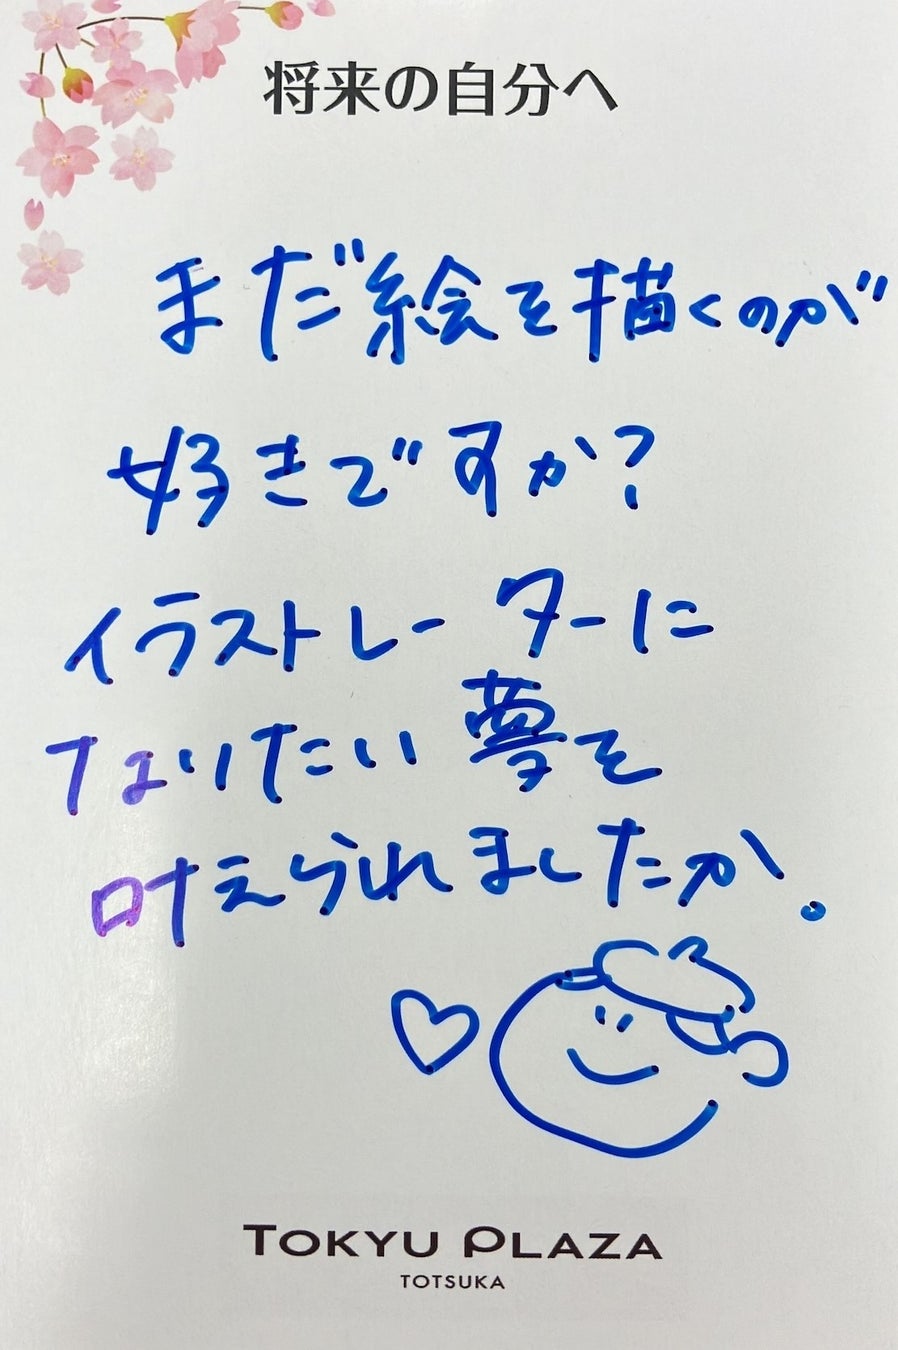 将来の自分へ
まだ絵を描くのが
好きですか?
イラストレーターに
なりたい夢を
叶えられましたか。
TOKYU PLAZA
TOTSUKA